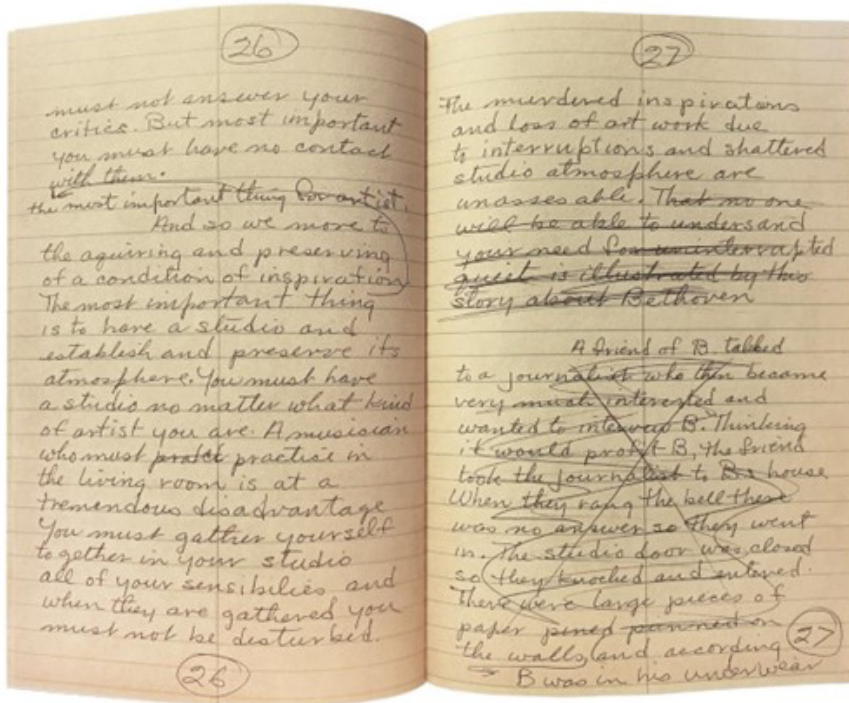 26
must not answer your
critics. But most important
you must have no contact
with them.
the most important thing for artist.
And so we more to
the aquiring and preserving
of a condition of inspiration
The most important thing
is to have a studio and
establish and preserve its
atmosphere. You must have
a studio no matter what kind
of artist you are. A musician
who must practice in
the living room is at a
tremendous disadvantage
You must gather yourself
together in your studio
all of your sensibilies and
when they are gathered you
must not be disturbed.
26
27
The murdered inspirations
and loss of art work due
to interruptions and shattered
studio atmosphere are
unassesable. That no one
will be able to undersand
your need for uninterrupted
quiet is illustrated by this
story about Bethoven
A friend of B. talked
to a journalist who then became
very much interested and
wanted to interview B. Thinking
it would profit B, the friend
took the journalist to B.s house
When they rang the bell there
was no answer so they went
in. The studio door was closed
so they knocked and entered.
There were large pieces of
paper pined punned on
the walls, and according
27
B was in his underwear